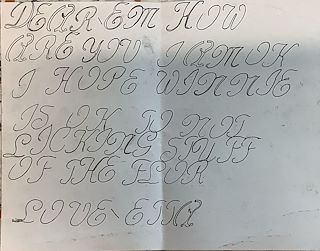 DEAR EM HOW
ARE YOU I AM OK
I HOPE WINNIE
IS OK TO NOT
LICKING STUFF
OF THE FLOR
LOVE ETTA